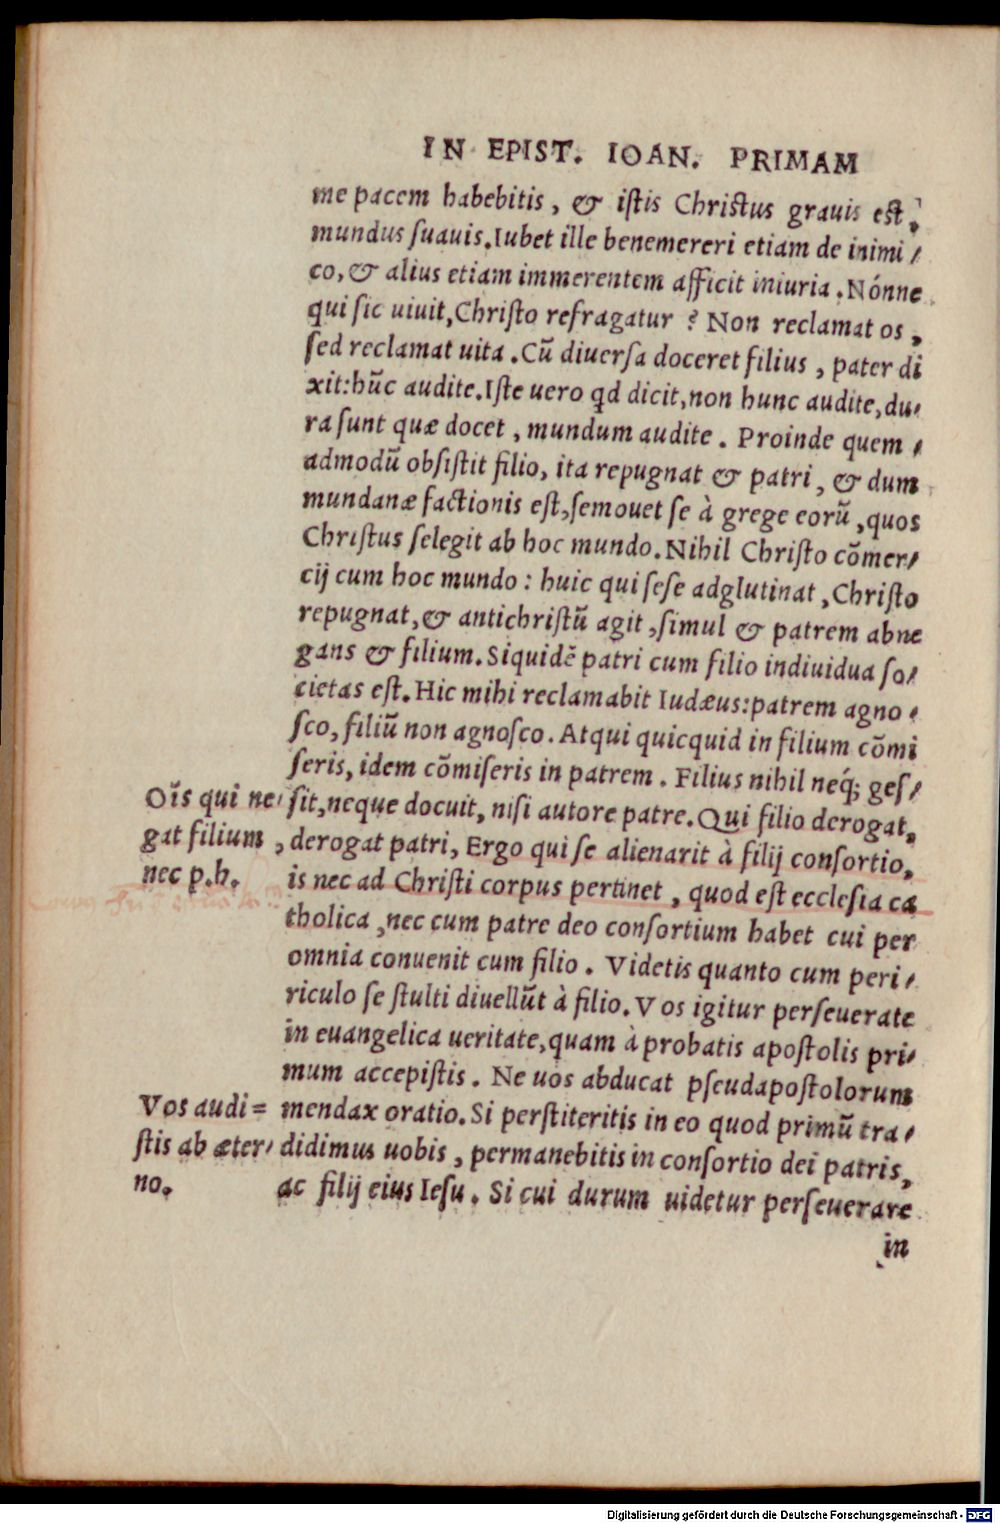 IN EPIST. IOAN. PRIMAM
me pacem habebitis, & istis Christus grauis est,
mundus suauis. Iubet ille benemereri etiam de inimi⸗
co, & alius etiam immerentem afficit iniuria. Nónne
qui sic uiuit, Christo refragatur? Non reclamat os,
sed reclamat uita. Cū diuersa doceret filius, pater di
xit: hūc audite. Iste uero qd dicit, non hunc audite, du⸗
ra sunt quæ docet, mundum audite. Proinde quem⸗
admodū obsistit filio, ita repugnat & patri, & dum
mundanæ factionis est, semouet se à grege eorū, quos
Christus selegit ab hoc mundo. Nihil Christo cōmer⸗
cij cum hoc mundo: huic qui sese adglutinat, Christo
repugnat, & antichristū agit, simul & patrem abne
gans & filium. Siquidē patri cum filio indiuidua so⸗
cietas est. Hic mihi reclamabit Iudæus: patrem agno⸗
sco, filiū non agnosco. Atqui quicquid in filium cōmi
seris, idem cōmiseris in patrem. Filius nihil neq; ges⸗
sit, neque docuit, nisi autore patre. Qui filio derogat,
derogat patri, Ergo qui se alienarit à filij consortio,
is nec ad Christi corpus pertinet, quod est ecclesia ca
tholica, nec cum patre deo consortium habet cui per
omnia conuenit cum filio. Videtis quanto cum peri⸗
riculo se stulti diuellūt à filio. Vos igitur perseuerate
in euangelica ueritate, quam à probatis apostolis pri⸗
mum accepistis. Ne uos abducat pseudapostolorum
mendax oratio. Si perstiteritis in eo quod primū tra⸗
didimus uobis, permanebitis in consortio dei patris,
ac filij eius Iesu. Si cui durum uidetur perseuerare
in
Oīs qui ne⸗
gat filium,
nec p. h.
Vos audi=
stis ab æter⸗
no.
Digitalisierung gefördert durch die Deutsche Forschungsgemeinschaft - DFG